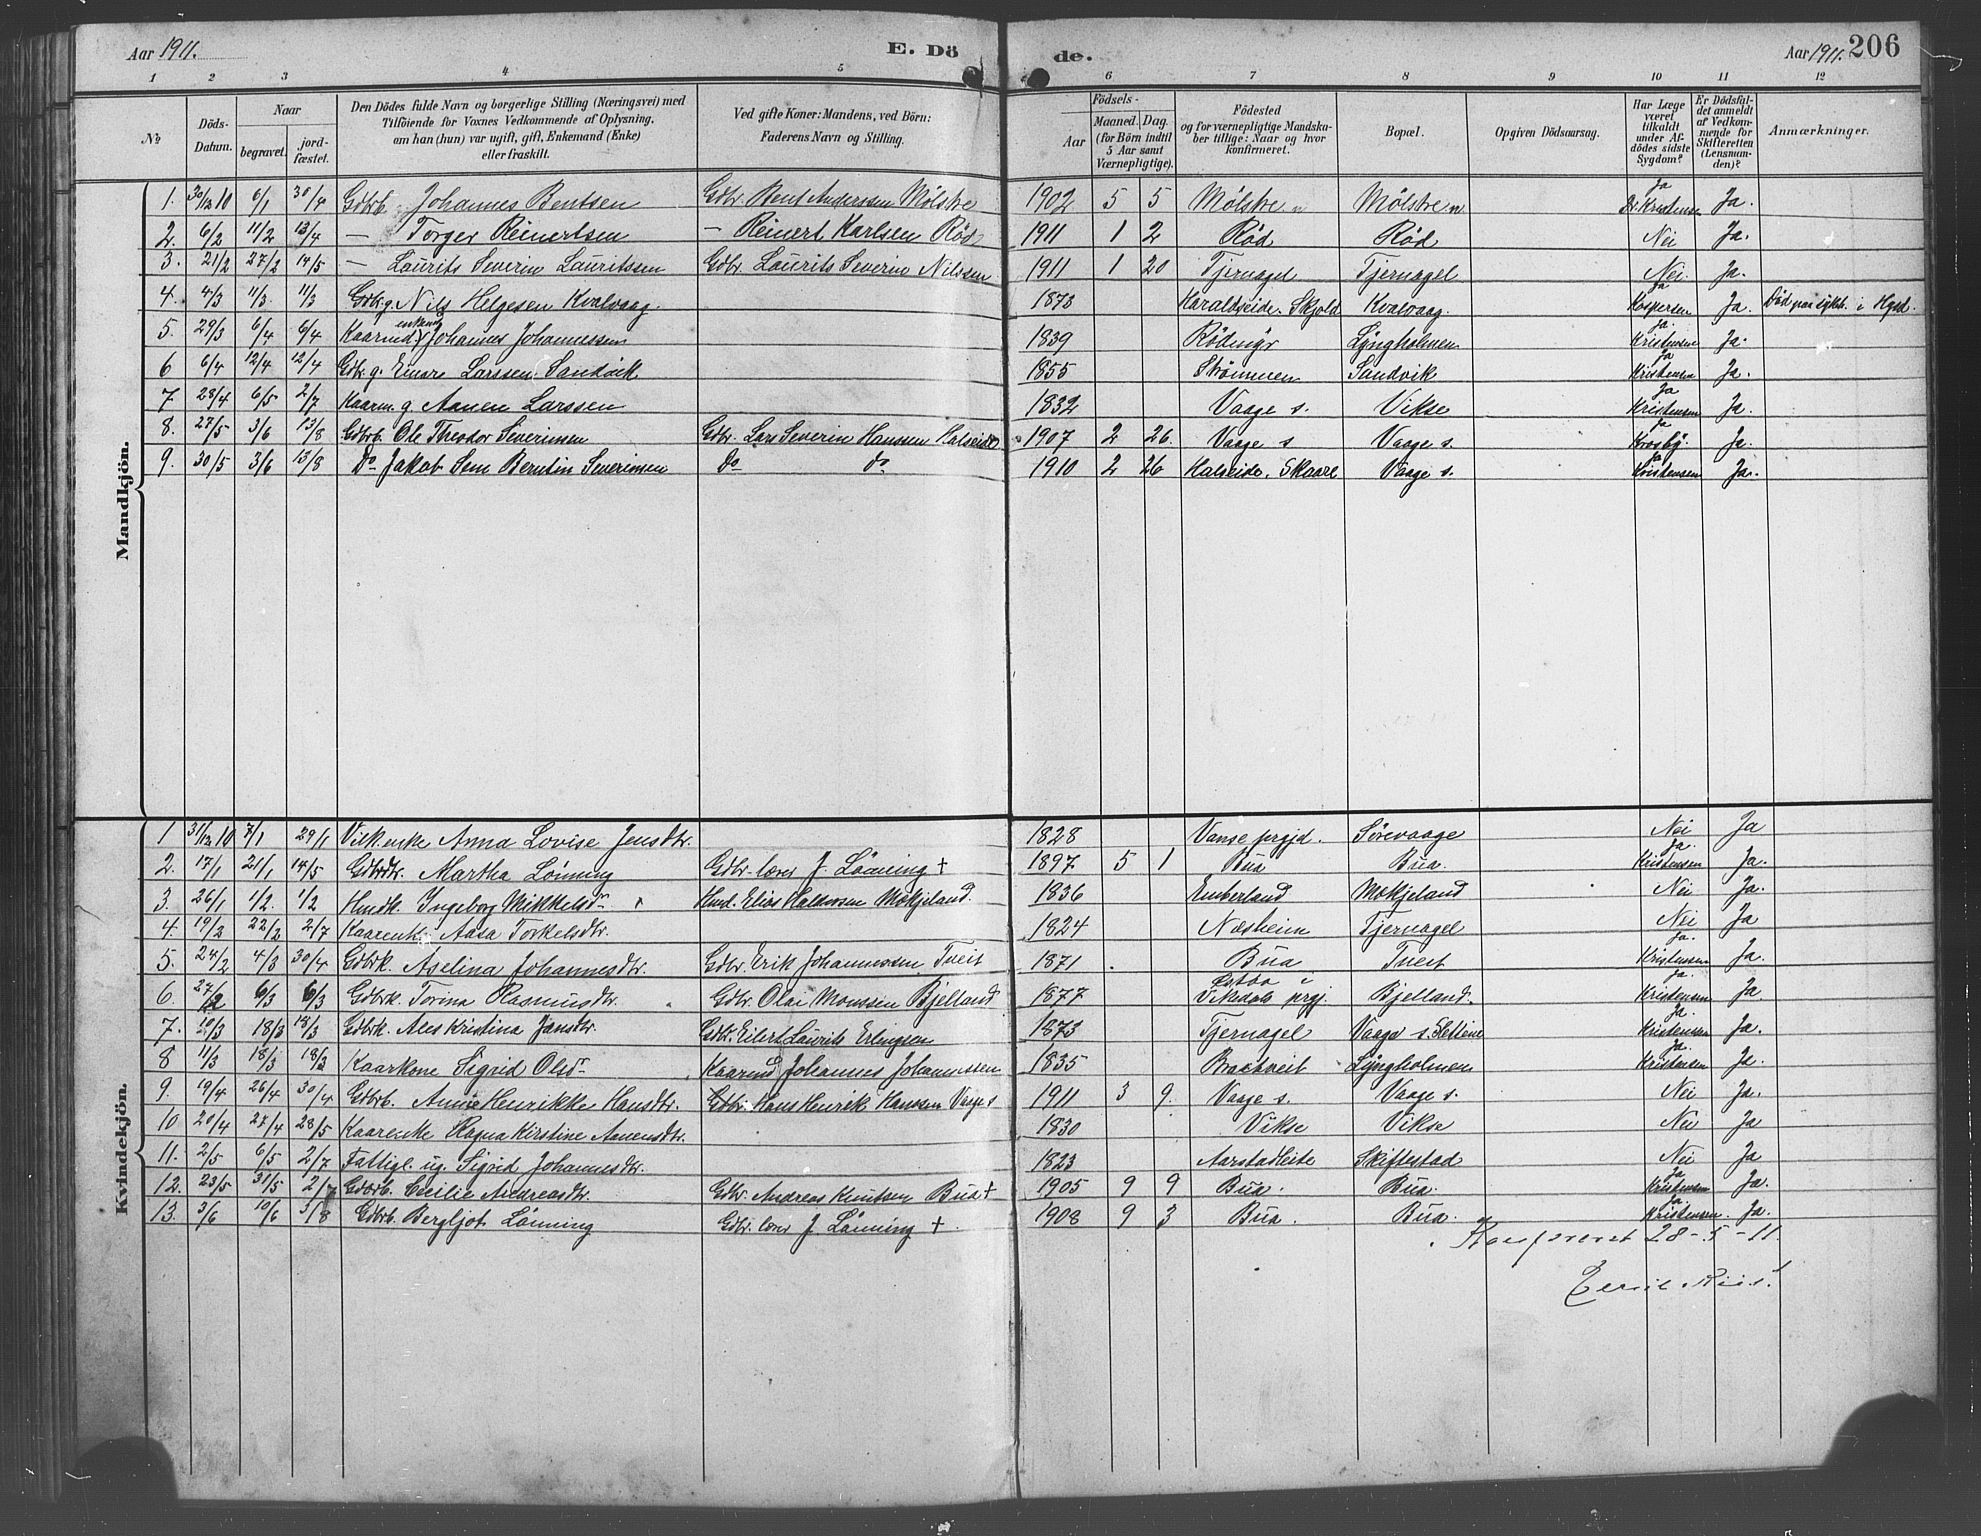 Aar 1911. E. Dö de. Aar 1911. 206
1 2 3 4 5 6 7 8 9 10 11 12
No Döds-Datum. Naar begravet. jord-fæstet. Den Dödes fulde Navn og borgerlige Stilling (Næringsvei) med Tilföiende for Voxnes Vedkommende af Oplysning, om han (hun) var ugift, gift, Enkemand (Enke) eller fraskilt. Ved gifte Koner: Mandens, ved Börn: Faderens Navn og Stilling. Födsels- Aar Maaned. Dag. (for Börn indtil 5 Aar samt Værnepligtige). Födested og for værnepligtige Mandskaber tillige: Naar og hvor konfirmeret. Bopæl. Opgiven Dödsaarsag. Har Læge været tilkaldt under Afdödes sidste Sygdom? Er Dödsfaldet anmeldt af Vedkommende for Skifteretten (Lensmanden)? Anmærkninger.
Mandkjön.
1. 30/12 10 6/1 30/4 Gdbrb. Johannes Bentsen Gdbr. Bent Anderssen Mølstre 1902 5 5 Mølstre n Mølstre n. Ja Dr. Kristensen Ja.
2. 6/2 11/2 13/4 — Torger Reinertsen — Reinert Karlsen Rød 1911 1 2 Rød Rød Nei Ja.
3. 21/2 27/2 14/5 — Laurits Severin Lauritssen Gdbr. Laurits Severin Nilssen 1911 1 20 Tjernagel Tjernagel Nei Ja.
4. 4/3 11/3 11/3 Gdbr. g. Nils Helgesen Kvalvaag 1873 Haraldseide. Skjold Kvalvaag. Ja Kaspersen Ja. Død paa sykeh. i Hgsd.
5. 29/3 6/4 6/4 Kaarmd. enkem. Johannes Johannessen 1839 Rødingr Lyngholmen Ja. Kristensen Ja.
6 6/4 12/4 12/4 Gdbr. g. Einar Larssen Sandvik 1855 Strømmen Sandvik Ja Kristensen Ja.
7 28/4 6/5 2/7 Kaarm. g. Aanen Larssen 1832 Vaage s. Vikse Ja Kristensen Ja.
8. 27/5 3/6 13/8 Gdbrb. Ole Theodor Severinsen Gdbr. Lars Severin Hanssen Halseide 1907 2 26. Vaage s Vaage s. Ja Krosby. Ja.
9. 30/5 3/6 13/8 Do Jakob Sem Berntin Severinsen Do do 1910 2 26 Halseide. Skaare Vaage s. Ja Kristensen Ja.
Kvindekjön.
1 31/12 10 7/1 29/1 Vilk. enke Anna Lovise Jensdtr. 1828 Vanse prgjd. Sørevaage Nei Ja
2. 17/1 21/1 14/5 Gdbrdtr. Martha Lønning Gdbr. lærer J. Lønning † 1897 5 1 Bua Bua. Ja. Kristensen Ja.
3. 26/1 1/2 1/2 Hmdk. Ingeborg Mikkelsdr Hmd. Elias Halversen Mokjeland. 1836 Emberland Mokjeland Nei Ja.
4. 19/2 22/2 2/7 Kaarenke Aasa Torkelsdtr. 1824 Næsheim Tjernagel Nei Ja
5. 24/2 4/3 30/4 Gdbrk. Aselina Johannesdtr. Gdbr. Erik Johannessen Tveit 1871 Bua Tveit Ja. Kristensen Ja.
6. 27/2 6/3 6/3 Gdbrk. Torina Rasmusdtr. Gdbr. Olai Monssen Bjelland 1877 Østbø i Vikedals prgj. Bjelland. Ja. Kristensen Ja
7. 10/3 18/3 18/3 Gdbrk. Ales Kristina Jansdtr. Gdbr. Eilert Laurits Erlingsen 1873 Tjernagel Vaage s. Slettene Ja. Kristensen Ja.
8 11/3 18/3 18/3 Kaarkone Sigrid Olsdr Kaarmd Johannes Johannessen 1835 Bratveit Lyngholmen Ja. Kristensen Ja.
9. 19/4 26/4 30/4 Gdbrb. Anna Henrikke Hansdtr. Gdbr. Hans Henrik Hanssen Vaage s 1911 3 9. Vaage s. Vaage s. Nei Ja.
10 20/4 27/4 28/5 Kaarenke Ragna Kirstine Aanensdtr. 1830 Vikse Vikse Nei Ja
11. 2/5 6/5 2/7 Fattigl. ug. Sigrid Johannesdtr. 1823 Aarstadleite Skiftestad Nei Ja
12. 23/5 31/5 2/7 Gdbrb. Cecilie Andreasdtr. Gdbr. Andreas Knutsen Bua † 1905 9 9 Bua. Bua. Ja Kristensen Ja.
13. 3/6 10/6 3/8 Gdbrb. Bergljot Lønning Gdbr. lærer J. Lønning † 1908 9 3 Bua. Bua. Ja Kristensen. Ja.
Konfereret 28-5-11.